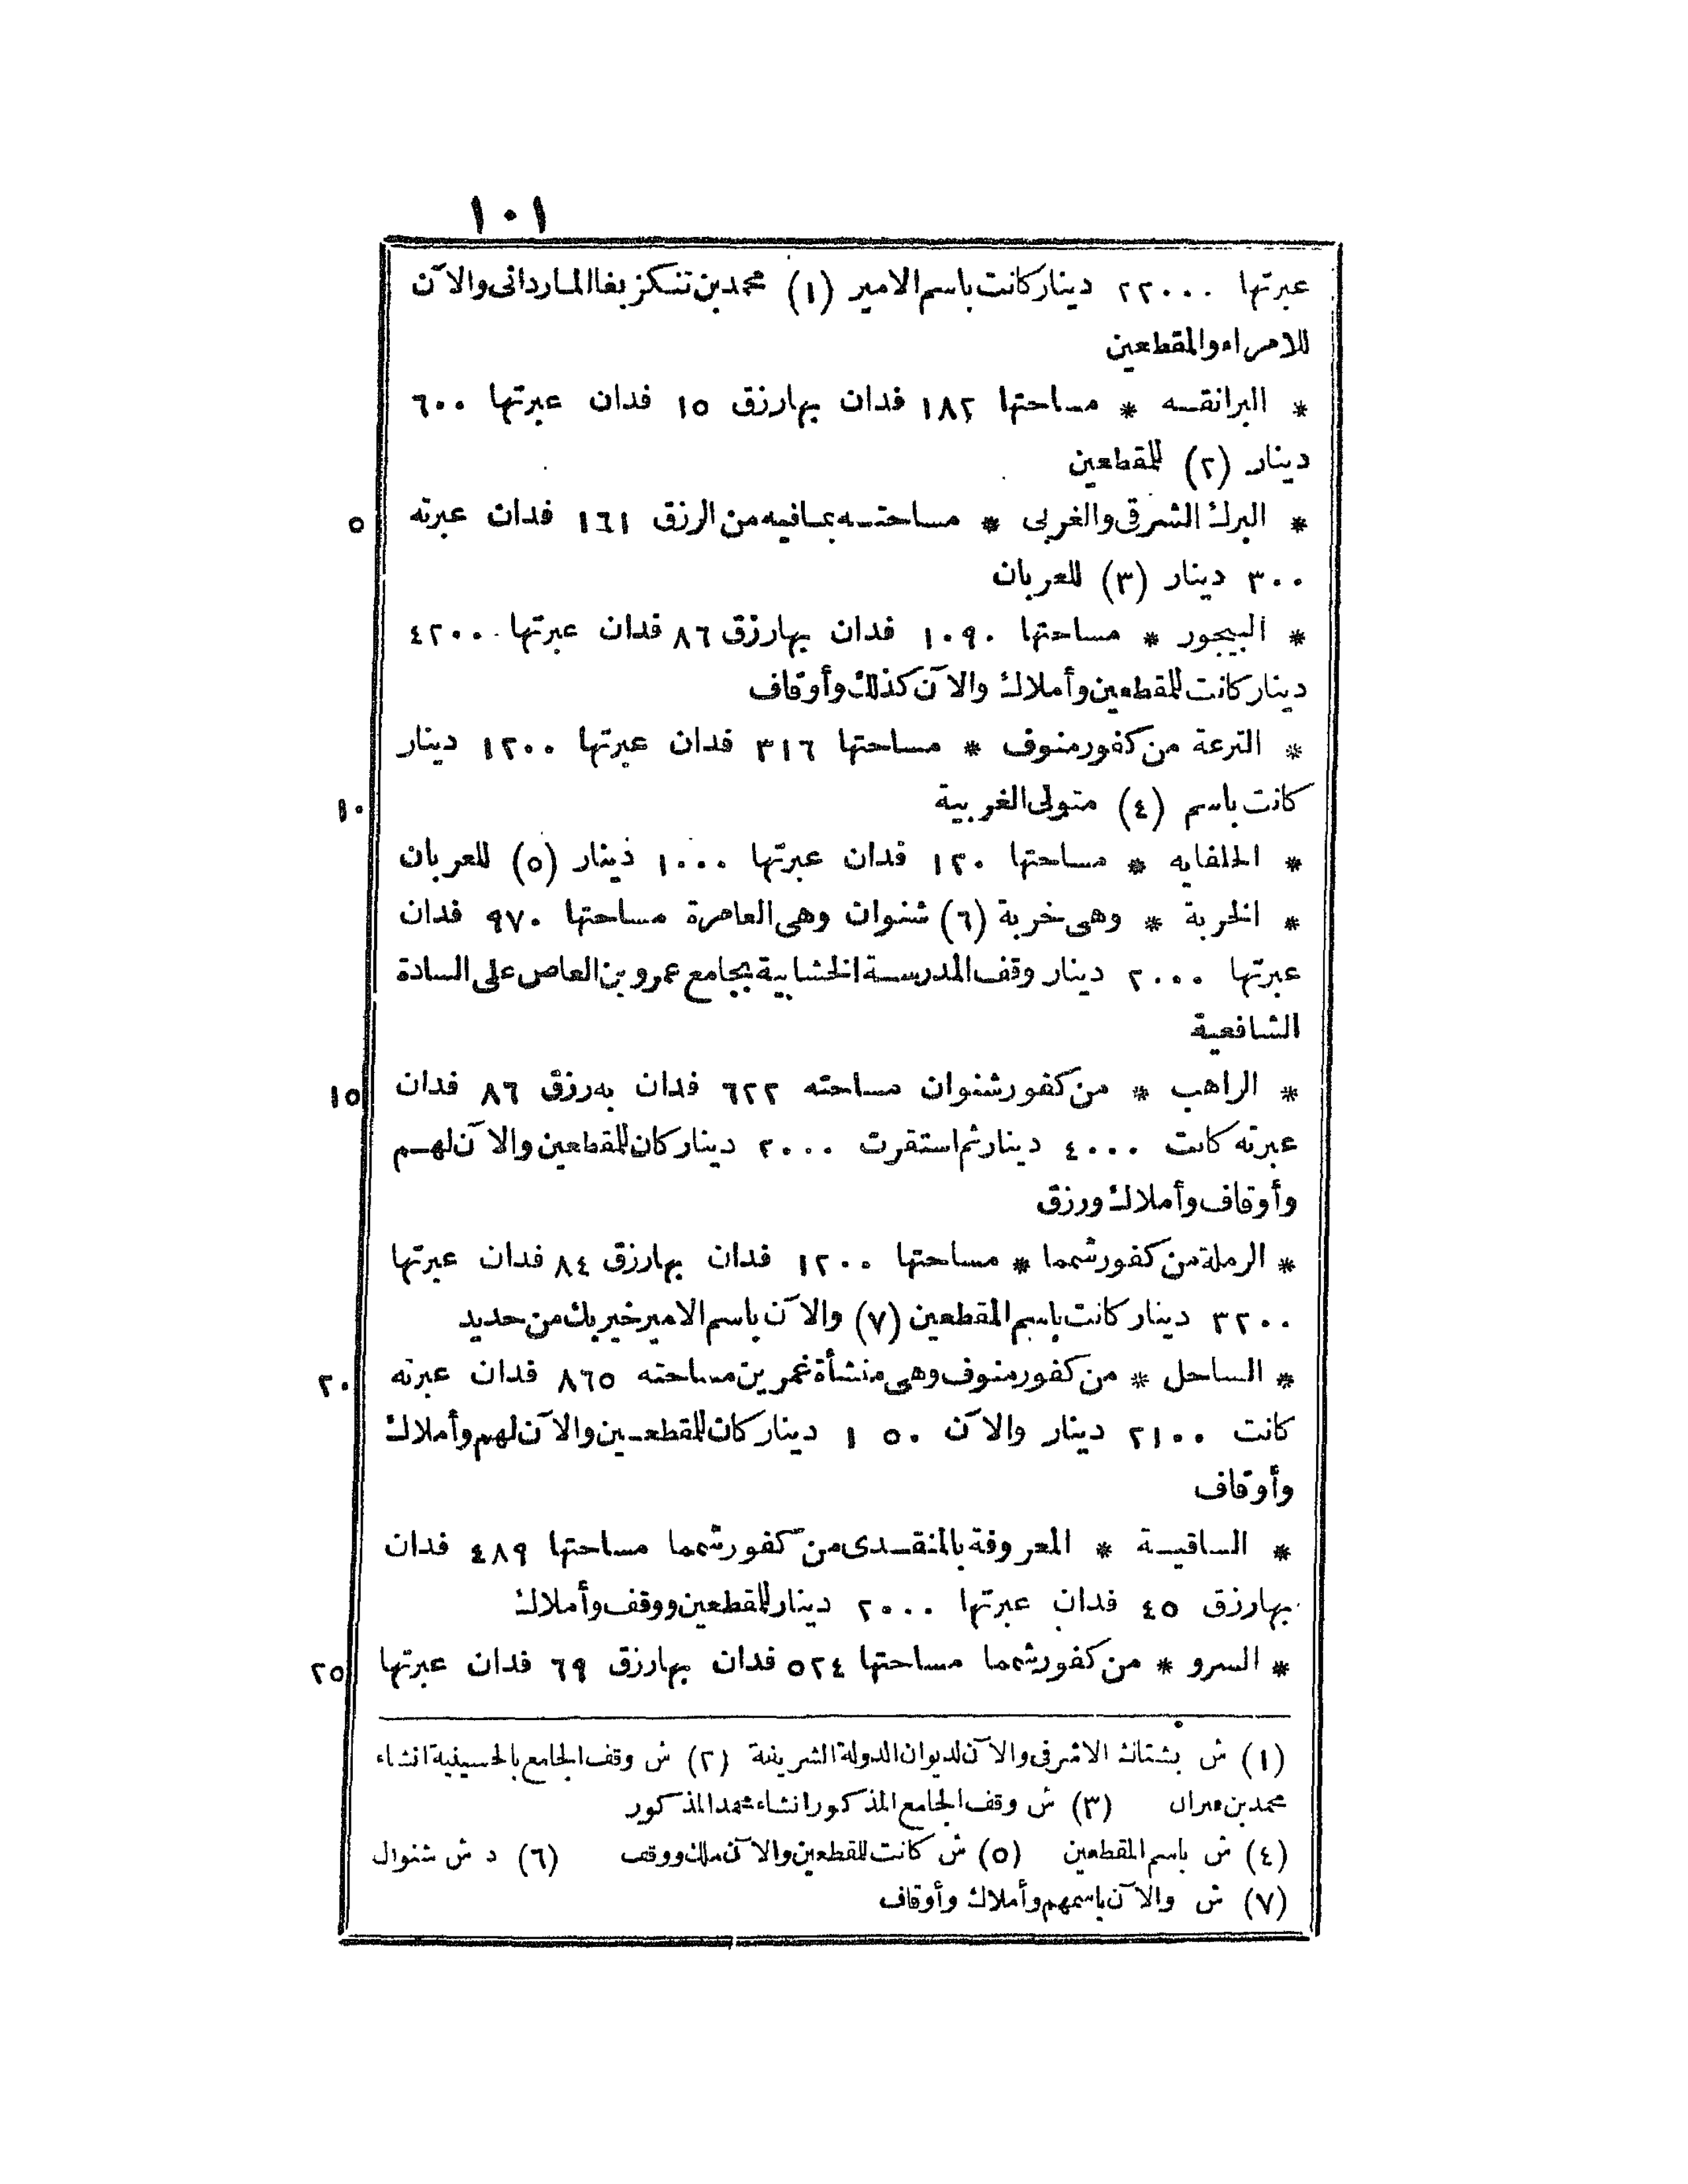 ١٠١
عبرتها ٢٢٠٠٠ دينار كانت باسم الامير (١) محمد بن تنكز بغا الماردانى والآن
للامراء والمقطعين
* البرانقه * مساحتها ١٨٢ فدان بها رزق ١٥ فدان عبرتها ٦٠٠
دينار (٢) للمقطعين
* البرك الشرقى والغربى * مساحته بما فيه من الرزق ١٦١ فدان عبرته ٥
٣٠٠ دينار (٣) للعربان
* البيجور * مساحتها ١٠٩٠ فدان بها رزق ٨٦ فدان عبرتها ٤٢٠٠
دينار كانت للمقطعين وأملاك والآن كذلك وأوقاف
* الترعة من كفور منوف * مساحتها ٣١٦ فدان عبرتها ١٢٠٠ دينار
كانت باسم (٤) متولى الغربية ١٠
* الحلفايه * مساحتها ١٢٠ فدان عبرتها ١٠٠٠ دينار (٥) للعربان
* الخربة * وهى خربة (٦) شنوان وهى العامرة مساحتها ٩٧٠ فدان
عبرتها ٢٠٠٠ دينار وقف المدرسة الخشابية بجامع عمرو بن العاص على السادة
الشافعية
* الراهب * من كفور شنوان مساحته ٦٢٢ فدان به رزق ٨٦ فدان ١٥
عبرته كانت ٤٠٠٠ دينار ثم استقرت ٢٠٠٠ دينار كان للمقطعين والآن لهم
وأوقاف وأملاك ورزق
* الرملة من كفور شمما * مساحتها ١٢٠٠ فدان بها رزق ٨٤ فدان عبرتها
٣٢٠٠ دينار كانت باسم المقطعين (٧) والآن باسم الامير خير بك من حديد
* الساحل * من كفور منوف وهى منشأة غمرين مساحته ٨٦٥ فدان عبرته ٢٠
كانت ٢١٠٠ دينار والآن ١ ٥٠ دينار كان للمقطعين والآن لهم وأملاك
وأوقاف
* الساقية * المعروفة بالمنقدى من كفور شمما مساحتها ٤٨٩ فدان
بها رزق ٤٥ فدان عبرتها ٢٠٠٠ دينار للمقطعين ووقف وأملاك
* السرو * من كفور شمما مساحتها ٥٢٤ فدان بها رزق ٦٩ فدان عبرتها ٢٥
(١) ش بشتاك الاشرفى والآن لديوان الدولة الشريفة (٢) ش وقف الجامع بالحسينية انشاء
محمد بن (٣) ش وقف الجامع المذكور انشاء محمد المذكور
(٤) ش باسم المقطعين (٥) ش كانت للمقطعين والآن ملك ووقف (٦) د ش شنوال
(٧) ش والآن باسمهم وأملاك وأوقاف